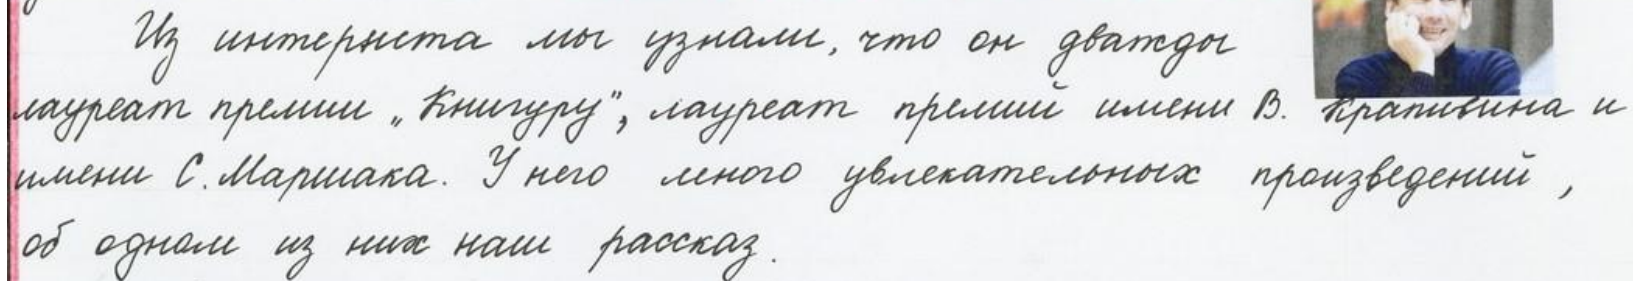 Из интернета мы узнали, что он дважды
лауреат премии „Книгуру", лауреат премий имени В. Крапивина и
имени С. Маршака. У него много увлекательных произведений,
об одном из них наш рассказ.